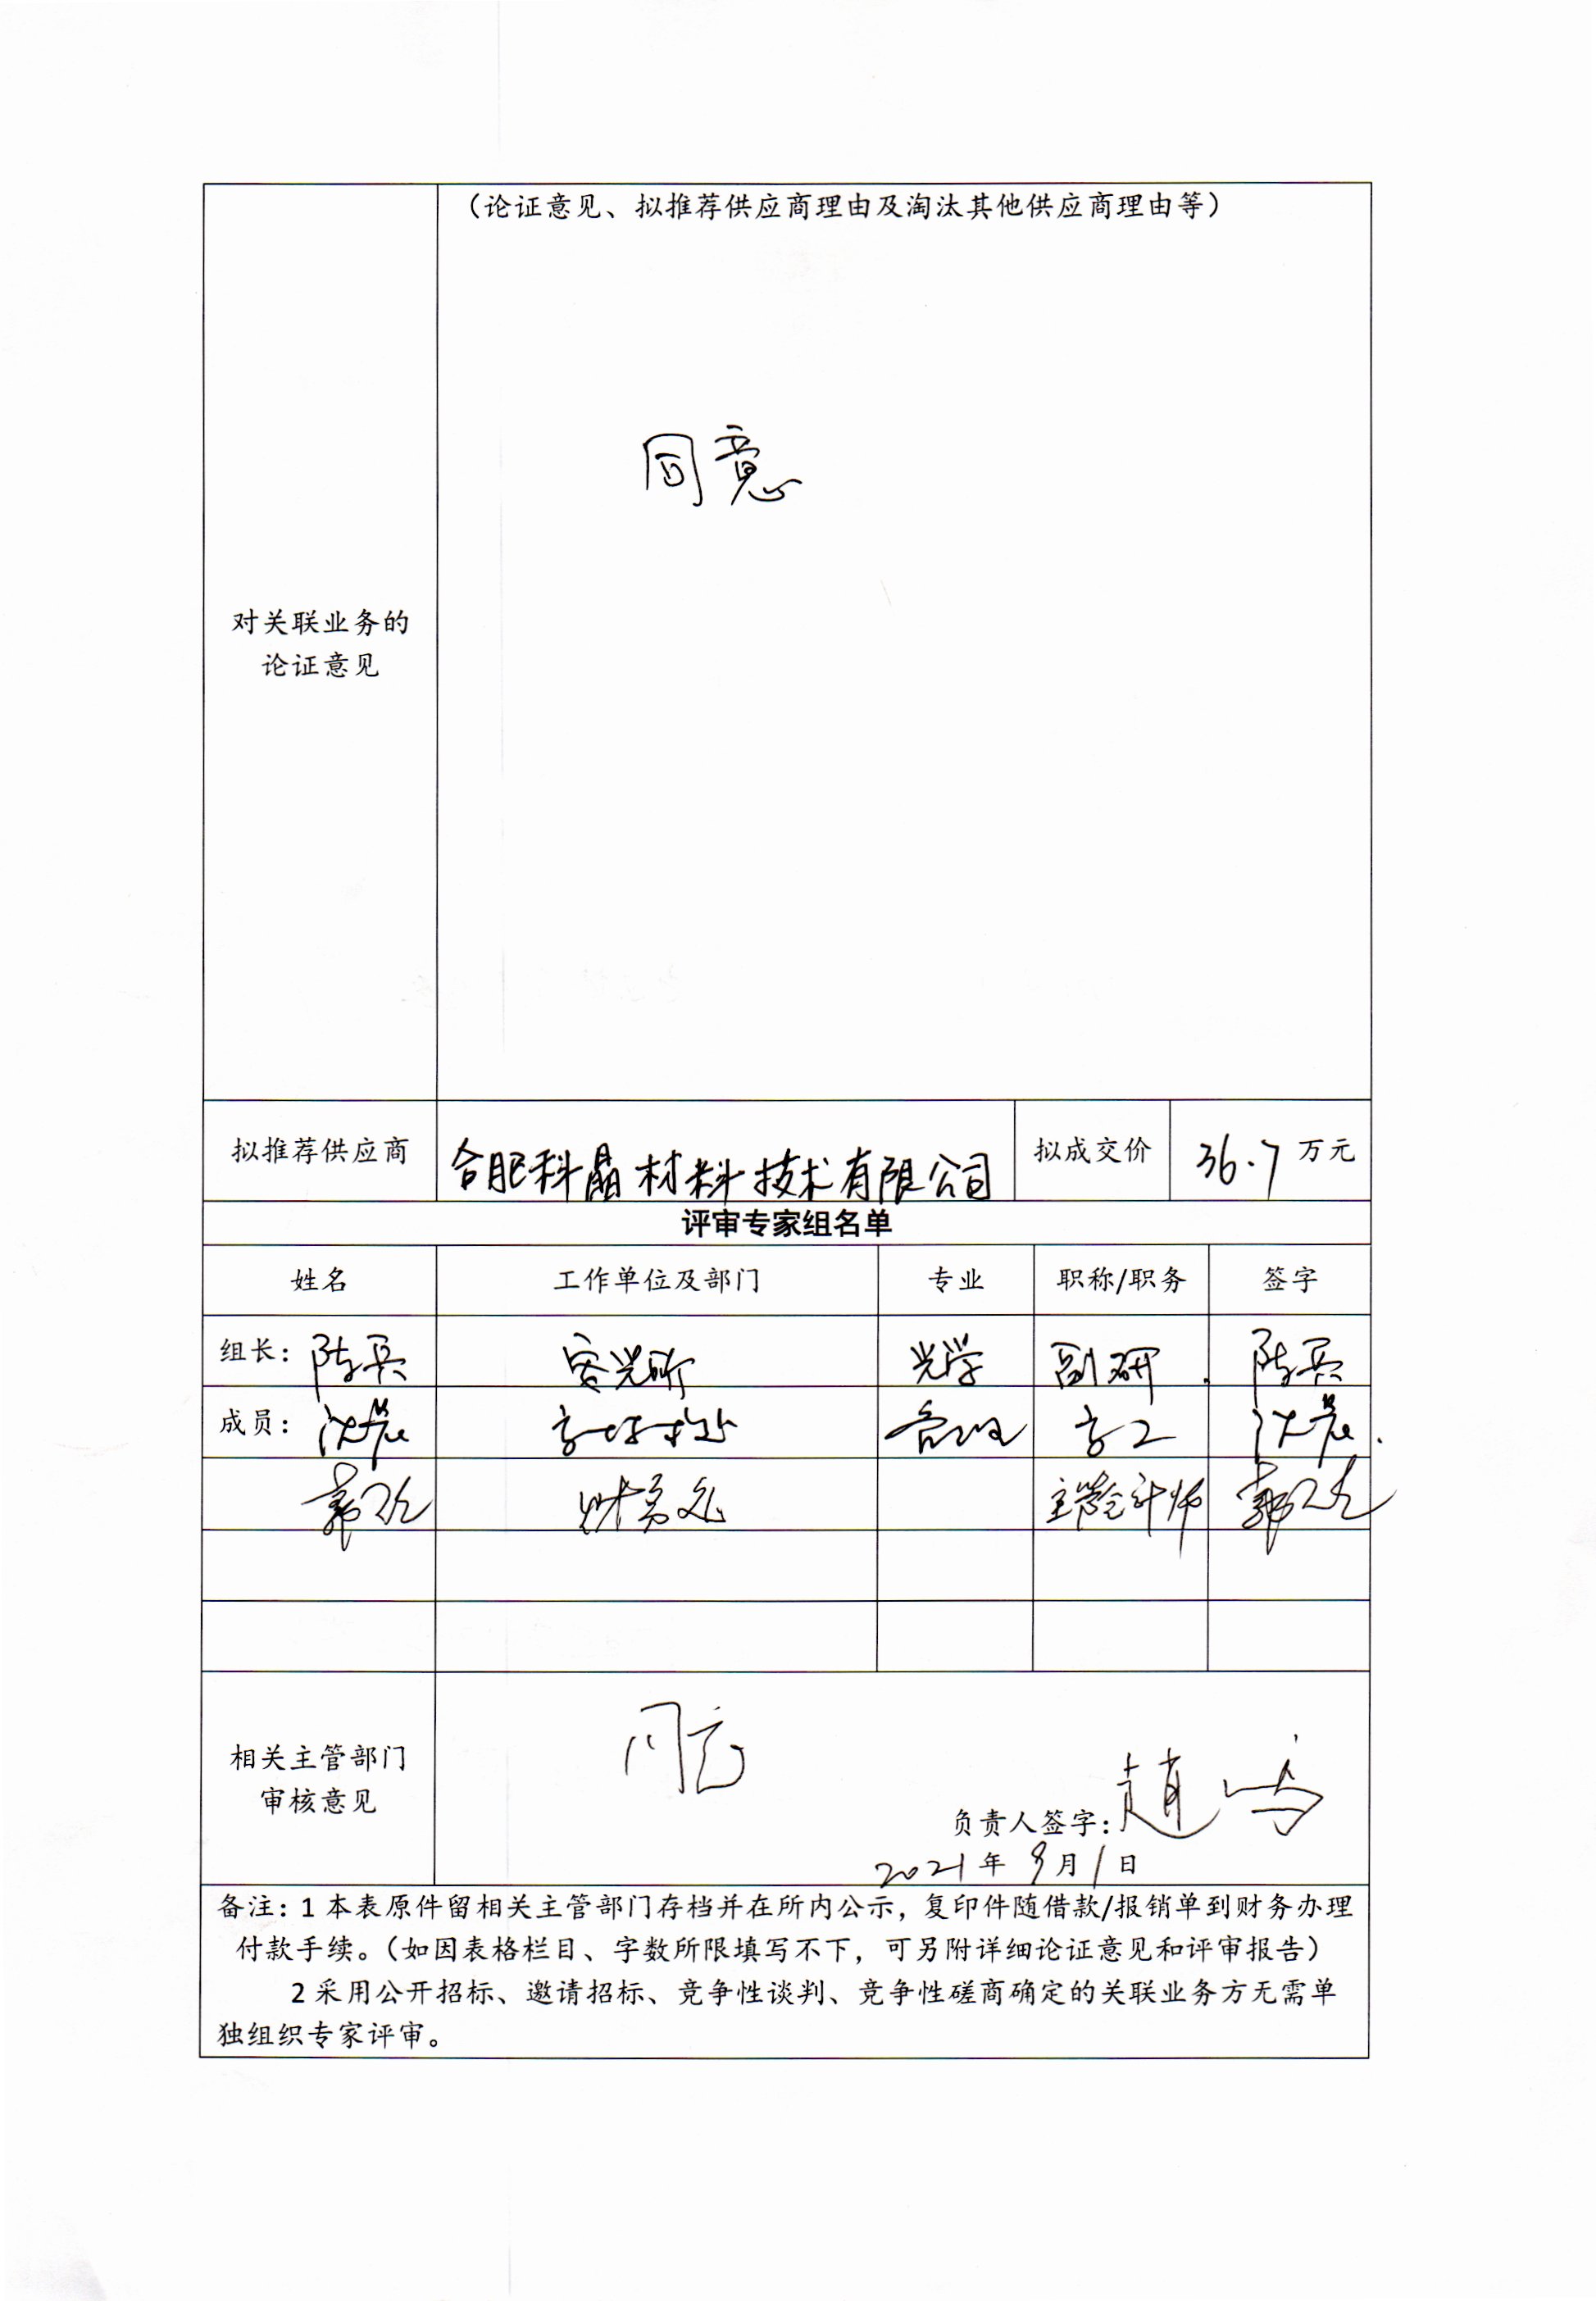 （论证意见、拟推荐供应商理由及淘汰其他供应商理由等）
同意
对关联业务的
论证意见
拟推荐供应商 合肥科晶材料技术有限公司 拟成交价 36.7 万元
评审专家组名单
姓名 工作单位及部门 专业 职称/职务 签字
组长：陈兵 安光所 光学 副研 陈兵
成员：沈 高工 沈
郭 财务处 主管会计师 郭
同意
相关主管部门
审核意见
负责人签字：赵
2021年9月1日
备注：1 本表原件留相关主管部门存档并在所内公示，复印件随借款/报销单到财务办理
付款手续。（如因表格栏目、字数所限填写不下，可另附详细论证意见和评审报告）
2 采用公开招标、邀请招标、竞争性谈判、竞争性磋商确定的关联业务方无需单
独组织专家评审。